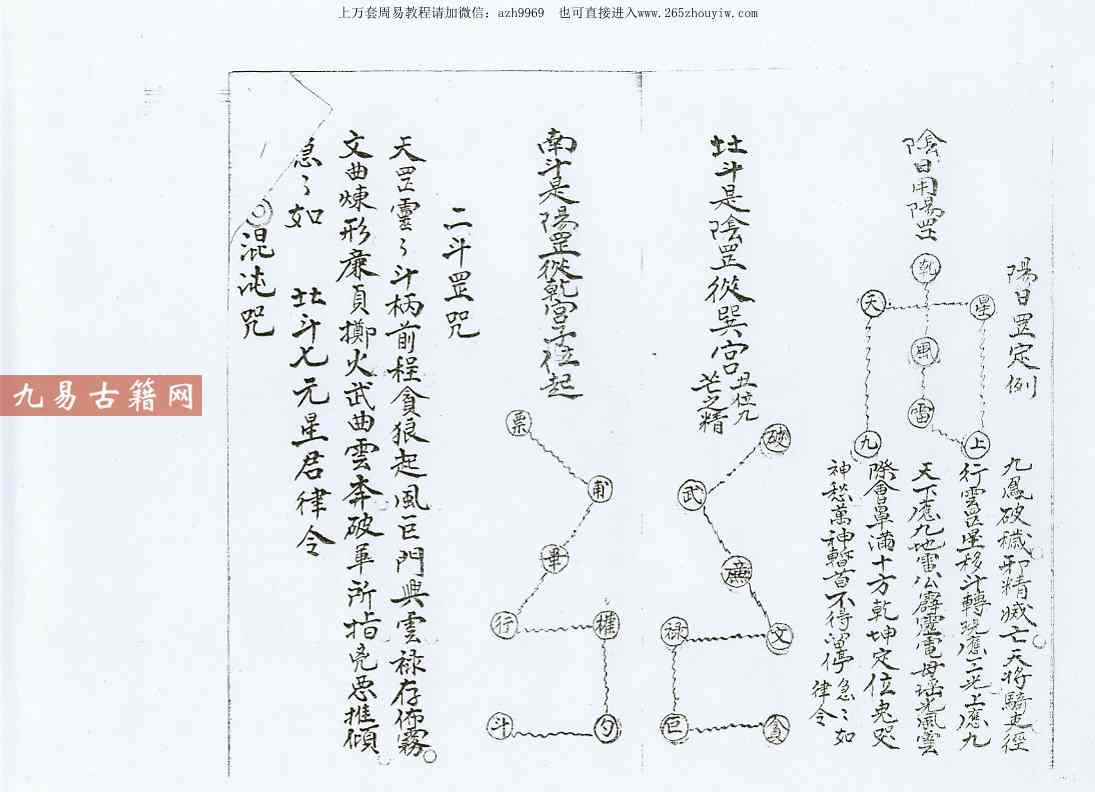 上万套周易教程请加微信：azh9969　也可直接进入www.265zhouyiw.com
九易古籍网
陽日罡定例
陰日用陽罡
乾
天
星
風
雷
九
上
九鳳破穢邪精滅亡天将騎吏徑
行雲罡星移斗轉 應三光上應九
天下應九地雷公霹靂電母瑶光風雲
際會罩滿十方乾坤定位鬼哭
神愁萬神暫首不得留停急〻如
律令
北斗是陰罡從巽宮丑位九
芒之精
破
武
廉
文
禄
巨
貪
南斗是陽罡從乾宮子位起
票
甫
畢
權
行
斗
勺
二斗罡咒
天罡靈〻斗柄前程貪狼起風巨門興雲禄存佈霧
文曲煉形廉貞擲火武曲雲奔破軍所指兇惡推傾
急〻如　北斗七元星君律令
混沌咒